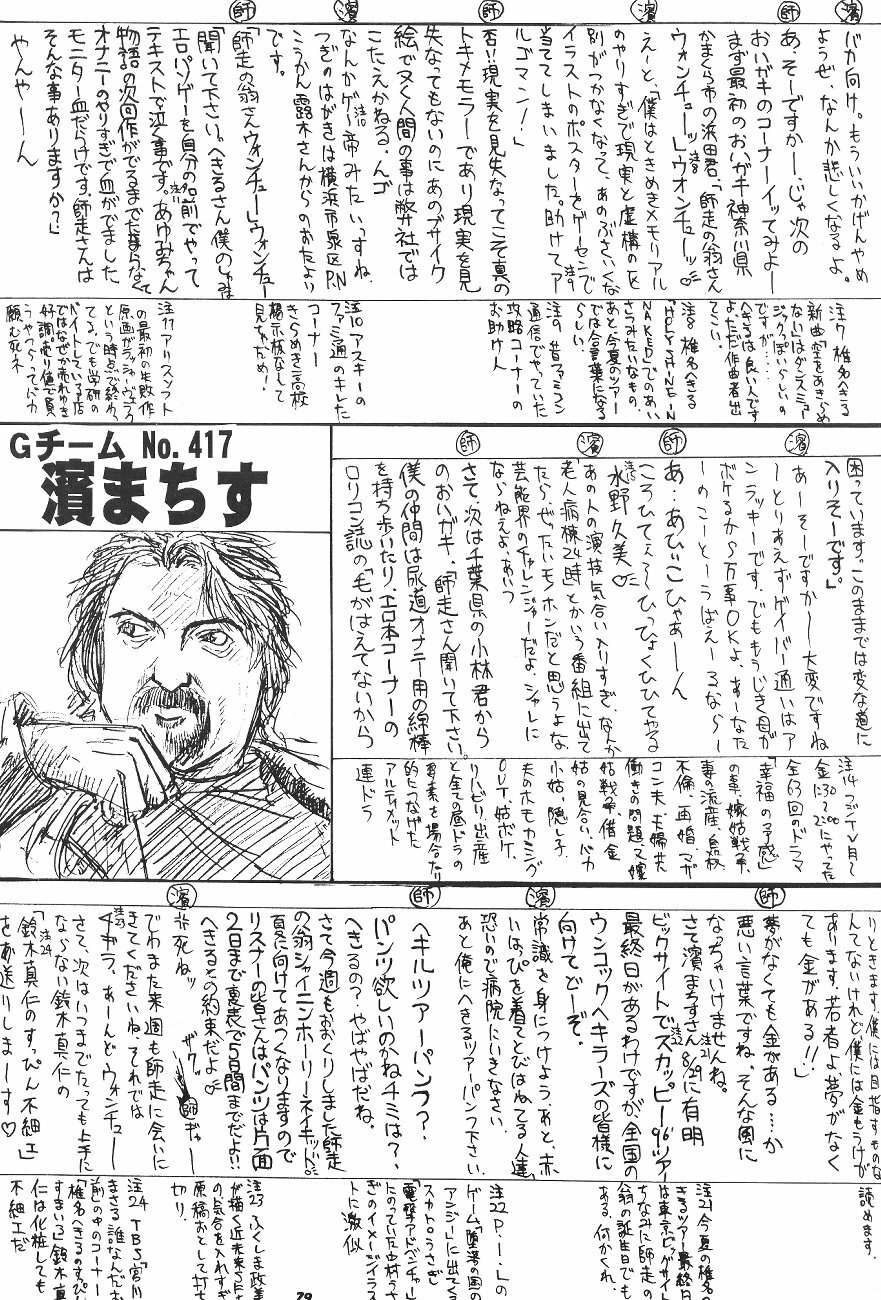 濱
バカ向け。もういいかげんやめ
ようぜ、なんか悲しくなるよ。
師
あ、そーですかー、じゃ次の
おいガキのコーナーイッてみよー
まず最初のおいガキ神奈川県
かまくら市の浜田君、「師走の翁さん
ウォンチューッ」ウォンチューッ♡
注8
濱
えーと、「僕はときめきメモリアル
のやりすぎで現実と虚構のく
別がつかなくなって、あのぶさいくな
イラストのポスターをゲーセンで
注9
当ててしまいました。助けてア
ルゴマン!」
師
否!!現実を見失なってこそ真の
トキメモラーであり現実を見
失なってもないのにあのブサイク
絵でヌく人間の事は弊社では
こたえかねる、んゴ
濱
なんかゲー帝みたいっすね
注10
つぎのはがきは横浜市泉区P.N
こうかん露木さんからのおたより
です。
師
「師走の翁さんウォンチュー」ウォンチュー
「聞いて下さい。へきるさん僕のしゅみは
エロパソゲーを自分の名前でやって
テキストで泣く事です。あゆみちゃん
注11
物語の次回作がでるまでたまらなくて
オナニーのやりすぎで血がでました
モニター血だらけです、師走さんは
そんな事ありますか?」
やんやーん
注7 椎名へきる
新曲「空をあきらめ
ない」はダンスミュー
ジックっぽいらしいの
ですが……
へきるは良い人です
よ、ただ作曲者出
てこい。
注8 椎名へきる
「HOLY SHINE IN
NAKED」でのあい
さつみたいなもの、
あと今夏のツアー
では合言葉になる
らしい。
注9 昔ファミコン
通信でやっていた
攻路コーナーの
お助け人
注10 アスキーの
ファミ通のキレた
コーナー
きらめき高校
掲示板なんて
見ちゃだめ!
注11 アリスソフト
の最初の失敗作
原画がラッシャーヴェラク
という時点で終わっ
てる。でも学研の
バイトしている店
ではなぜか売れゆき
好調、売り値で買
うやつらってバカ
顧む死ネ
Gチーム No.417
濱まちす
困っています。このままでは変な道に
入りそーです」
濱
あーそーですかー大変ですね
ーとりあえずゲイバー通いはア
ンラッキーです、でももうじき母が
ボケるから万事OKよ、あーなた
ーのことーうばえーるならー
師
あ…あひいこひゃあーん
ころひてえよ〜ひっひょくひひてやる
水野久美♡
濱
あの人の演技気合い入りすぎ、なんか
老人病棟24時とかいう番組に出て
たら、ぜったいモノホンだと思うよな
芸能界のチャレンジャーだよ、シャレに
ならねえよ、あいつ
師
さて、次は千葉県の小林君から
のおいガキ、「師走さん聞いて下さい。
僕の仲間は尿道オナニー用の綿棒
を持ち歩いたり、エロ本コーナーの
ロリコン誌の「毛がはえてないから
注14 フジTV月〜
金に30〜2:00にやってた
全63回のドラマ
「幸福の予感」
の事、嫁姑戦争、
妻の流産、登校
不倫、再婚、マザ
コン夫、主婦共
働きの問題、又嫁
姑戦争借金
姑の見合い、バカ
小姑、隠し子
夫のホモカミング
OUT、姑ボケ、
リハビリ出産
と全ての昼ドラの
要素を場合たり
的につなげた
アルティメット
連ドラ
りときます。僕には目指すものな
んてないけれど僕には金もうけが
あります。若者よ、夢がなく
ても金がある!!」
師
夢がなくても金がある…か
悪い言葉ですね、そんな風に
なっちゃいけませんね。
さて濱まちすさん8/29に有明
注21
ビックサイトでスカッピー96'ツアー
注22
最終日があるわけですが、全国の
ウンコックヘキラーズの皆様に
向けてどーぞ。
濱
常識を身につけよう、あと、赤
いはっぴを着てとびはねてる人達
恐いので病院にいきなさい。
あと俺にへきるツアーパンフ下さい。
師
ヘキルツアーパンフ?、
パンツ欲しいのかねチミは?、
へきるの?、やばやばだね。
さて今週もおくりしました師走
の翁シャイニンホーリーネイキッド。
夏に向けてあつくなりますので
リスナーの皆さんはパンツは片面
2日まで裏表で5日間までだよ!!
へきるとの約束だよ♡
濱
卦死ねッ ザク。 師ギャー
でわまた来週も師走に会いに
きてくださいね、それでは
注23
チャオラ、あーんどウォンチュー
さて、次はいつまでたっても上手に
ならない鈴木真仁の
注24
「鈴木真仁のすっぴん不細工」
をお送りしまーす♡
読めます。
注21 今夏の椎名へ
きるツアー最終日
は東京ビッグサイト
ちなみに師走の
翁の誕生日でも
ある、何かくれ、
注22 P.I.Lの
ゲーム「墮落の国の
アンジー」に出てくる
スカトロうさぎ
「電撃アドベンチャー」
にのっていた中村うさ
ぎのイメージイラス
トに激似
注23 ふくしま政美
が描く近未来うんた
の気合を入れすぎ
原稿おとして打ち
切り。
注24 TBS「宮川
まさる 誰なんだお
前」の中のコーナー
「椎名へきるのすっぴん
すまいる」鈴木真
仁は化粧しても
不細工だ
29